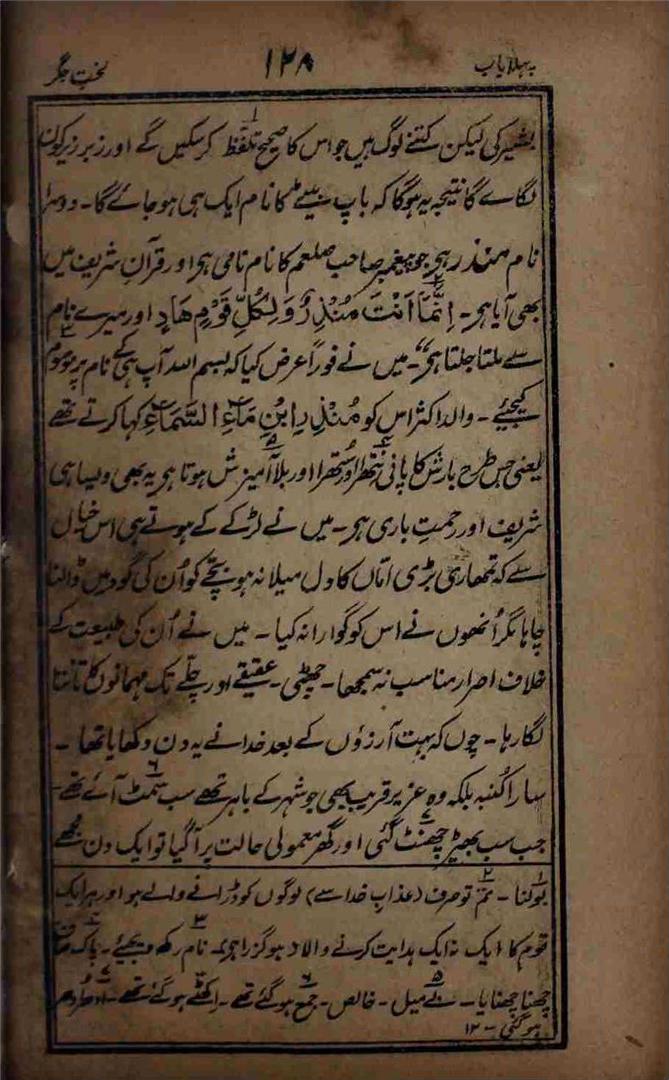 پہلا باب ۱۲۸ لخت جگر
بشیر کی لیکن کتنے لوگ ہیں جو اس کا صحیح تلفظ کرسکیں گے اور زبر زیر کون
لگاے گا نتیجہ یہ ہوگا کہ باپ بیٹے کا نام ایک ہی ہو جائے گا۔ دوسرا
نام منذر ہی جو پیغمبر صاحب صلعم کا نام نامی ہی اور قرآن شریف میں
بھی آیا ہی۔ اِنَّمَا اَنْتَ مُنْذِرٌ وَلِکُلِّ قَوْمٍ ھَادٍ اور میرے نام
سے ملتا جلتا ہی“۔ میں نے فوراً عرض کیا کہ بسم اللہ آپ ہی کے نام پر موسوم
کیجئیے۔ والد اکثر اس کو مُنْذِرِ ابْنِ مَاءِ السَّمَاءِ کہا کرتے تھے
یعنی جس طرح بارش کا پانی نتھرا اور ستھرا اور بلا آمیزش ہوتا ہی یہ بھی ویسا ہی
شریف اور رحمتِ باری ہی۔ میں نے لڑکے کے ہوتے ہی اس خیال
سے کہ تمھاری بڑی امّاں کا دل میلا نہ ہو بچّے کو اُن کی گود میں ڈالنا
چاہا مگر اُنھوں نے اس کو گوارا نہ کیا۔ میں نے اُن کی طبیعت کے
خلاف اصرار مناسب نہ سمجھا۔ چھٹی۔ عقیقے اور چلّے تک مہمانوں کا تانتا
لگا رہا۔ چوں کہ بہت آرزؤں کے بعد خدا نے یہ دن دکھایا تھا۔
سارا کُنبہ بلکہ وہ عزیز قریب بھی جو شہر کے باہر تھے سب سمٹ آئے تھے۔
جب سب بھیڑ چھنٹ گئی اور گھر معمولی حالت پر آگیا تو ایک دن مجھے
۱ بولنا۔ ۲ تم تو صرف (عذاب خدا سے) لوگوں کو ڈرانے والے ہو اور ہر ایک
قوم کا ایک نہ ایک ہدایت کرنے والا ہو گزرا ہی ۳ نام رکھ دیجئیے۔ ۴ پاک صاف
چھنا چھنایا۔ ۵ بے میل۔ خالص۔ ۶ جمع ہوگئے تھے۔ اکٹھے ہوگئے تھے۔
ہوگئی۔ ۱۲